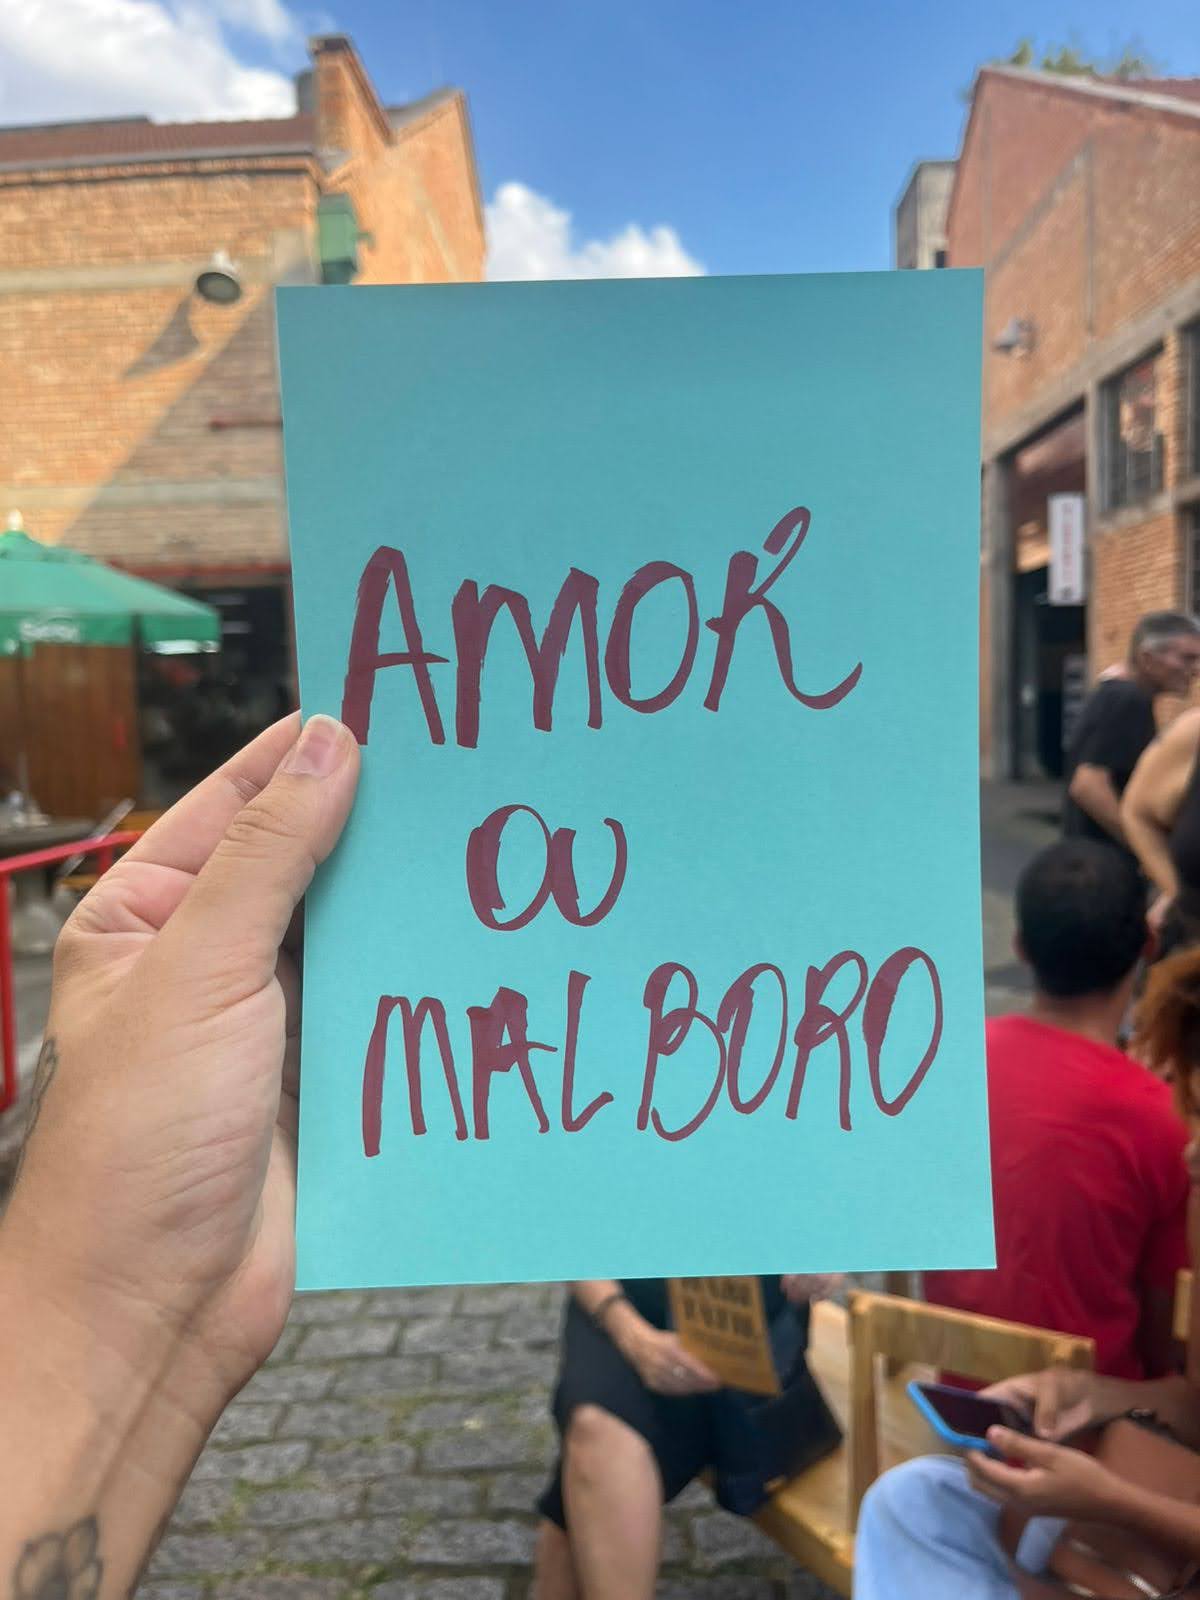 AMOR
OU
MALBORO